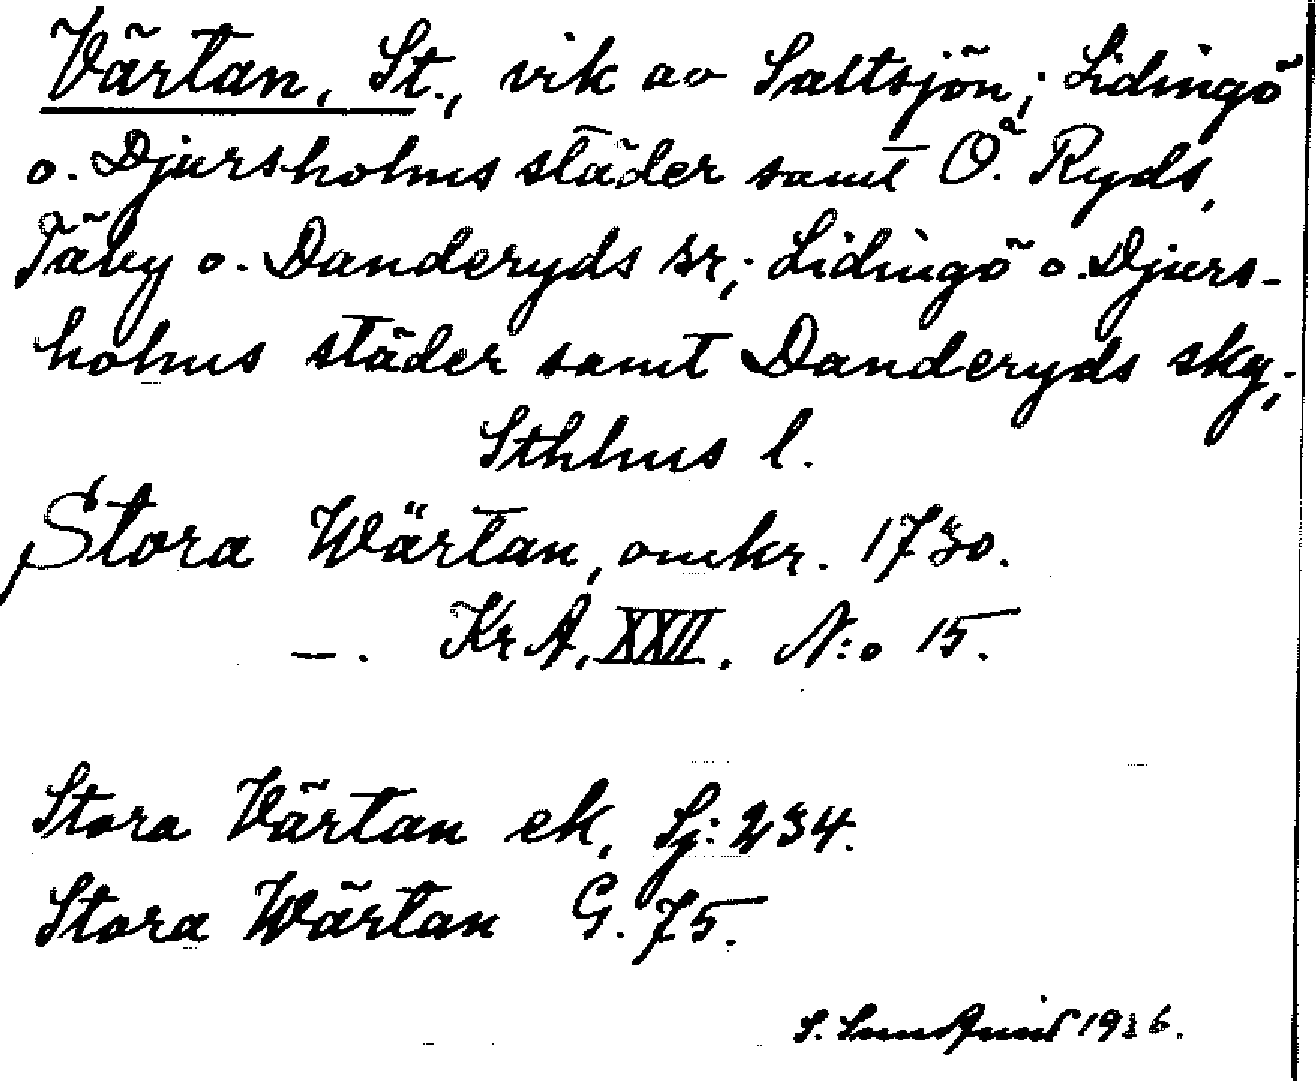 Värtan, St., vik av Saltsjön; Lidingö
o. Djursholms städer samt Ö. Ryds,
Täby o. Danderyds sr; Lidingö o. Djurs-
holms städer samt Danderyds skg;
Sthlms l.
Stora Wärtan, omkr. 1730.
—. KrA. XXII. N:o 15.
Stora Värtan ek, Sj: 234.
Stora Wärtan G. 75.
S. Lundqvist 1936.